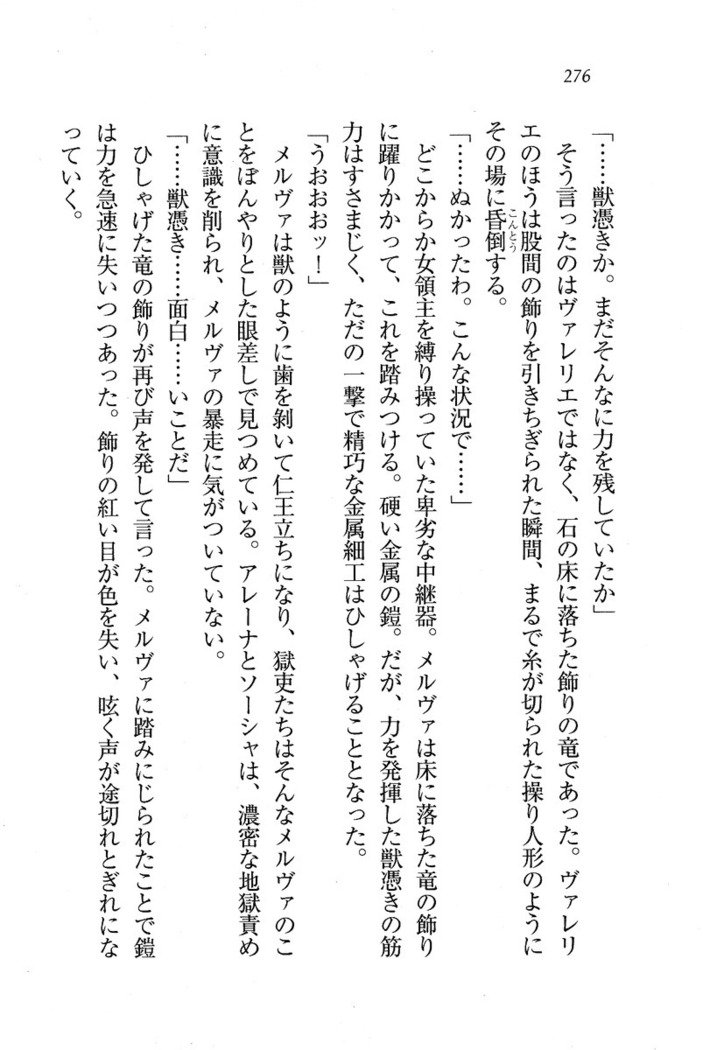 276
「……獣憑きか。まだそんなに力を残していたか」
　そう言ったのはヴァレリエではなく、石の床に落ちた飾りの竜であった。ヴァレリ
エのほうは股間の飾りを引きちぎられた瞬間、まるで糸が切られた操り人形のように
その場に昏倒する。
こんとう
「……ぬかったわ。こんな状況で……」
　どこからか女領主を縛り操っていた卑劣な中継器。メルヴァは床に落ちた竜の飾り
に躍りかかって、これを踏みつける。硬い金属の鎧。だが、力を発揮した獣憑きの筋
力はすさまじく、ただの一撃で精巧な金属細工はひしゃげることとなった。
「うおおおッ！」
　メルヴァは獣のように歯を剥いて仁王立ちになり、獄吏たちはそんなメルヴァのこ
とをぼんやりとした眼差しで見つめている。アレーナとソーシャは、濃密な地獄責め
に意識を削られ、メルヴァの暴走に気がついていない。
「……獣憑き……面白……いことだ」
　ひしゃげた竜の飾りが再び声を発して言った。メルヴァに踏みにじられたことで鎧
は力を急速に失いつつあった。飾りの紅い目が色を失い、呟く声が途切れとぎれにな
っていく。